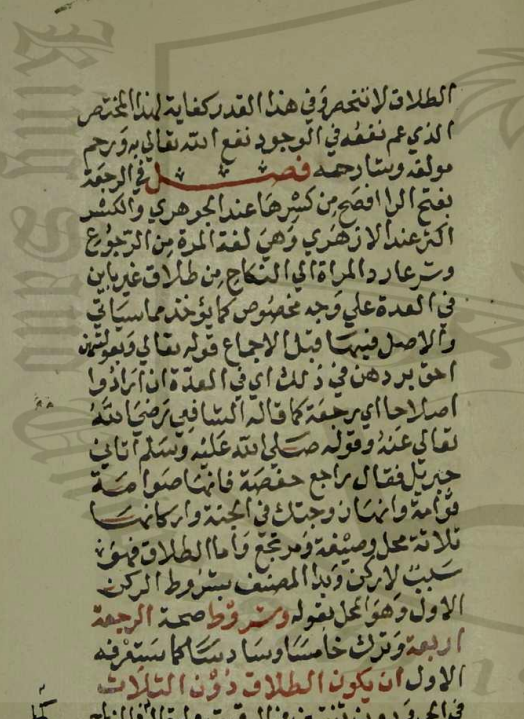 الطلاق لا تنحصر وفي هذا القدر كفاية لهذا المختصر
الذي عم نفعه في الوجود نفع الله تعالى به ورحم
مولفه وشارحه فصل في الرجعة
بفتح الرا افصح من كسرها عند الجوهري والكسر
اكثر عند الازهري وهي لغة المرة من الرجوع
وشرعا رد المراة الي النكاح من طلاق غير باين
في العدة علي وجه مخصوص كما يؤخذ مما سياتي
والاصل فيها قبل الاجماع قوله تعالي وبعولتهن
احق بردهن في ذلك اي في العدة ان ارادوا
اصلاحا اي رجعة كما قاله الشافعي رضي الله
تعالي عنه وقوله صلي الله عليه وسلم اتاني
جبريل فقال راجع حفصة فانها صوامة
قوامة وانها زوجتك في الجنة واركانها
ثلاثة محل وصيغة ومرتجع واما الطلاق فهو
سبب لا ركن وبدا المصنف بشروط الركن
الاول وهو المحل بقوله وشروط صحة الرجعة
اربعة وترك خامسا وسادسا كما ستعرفه
الاول ان يكون الطلاق دون الثلاث